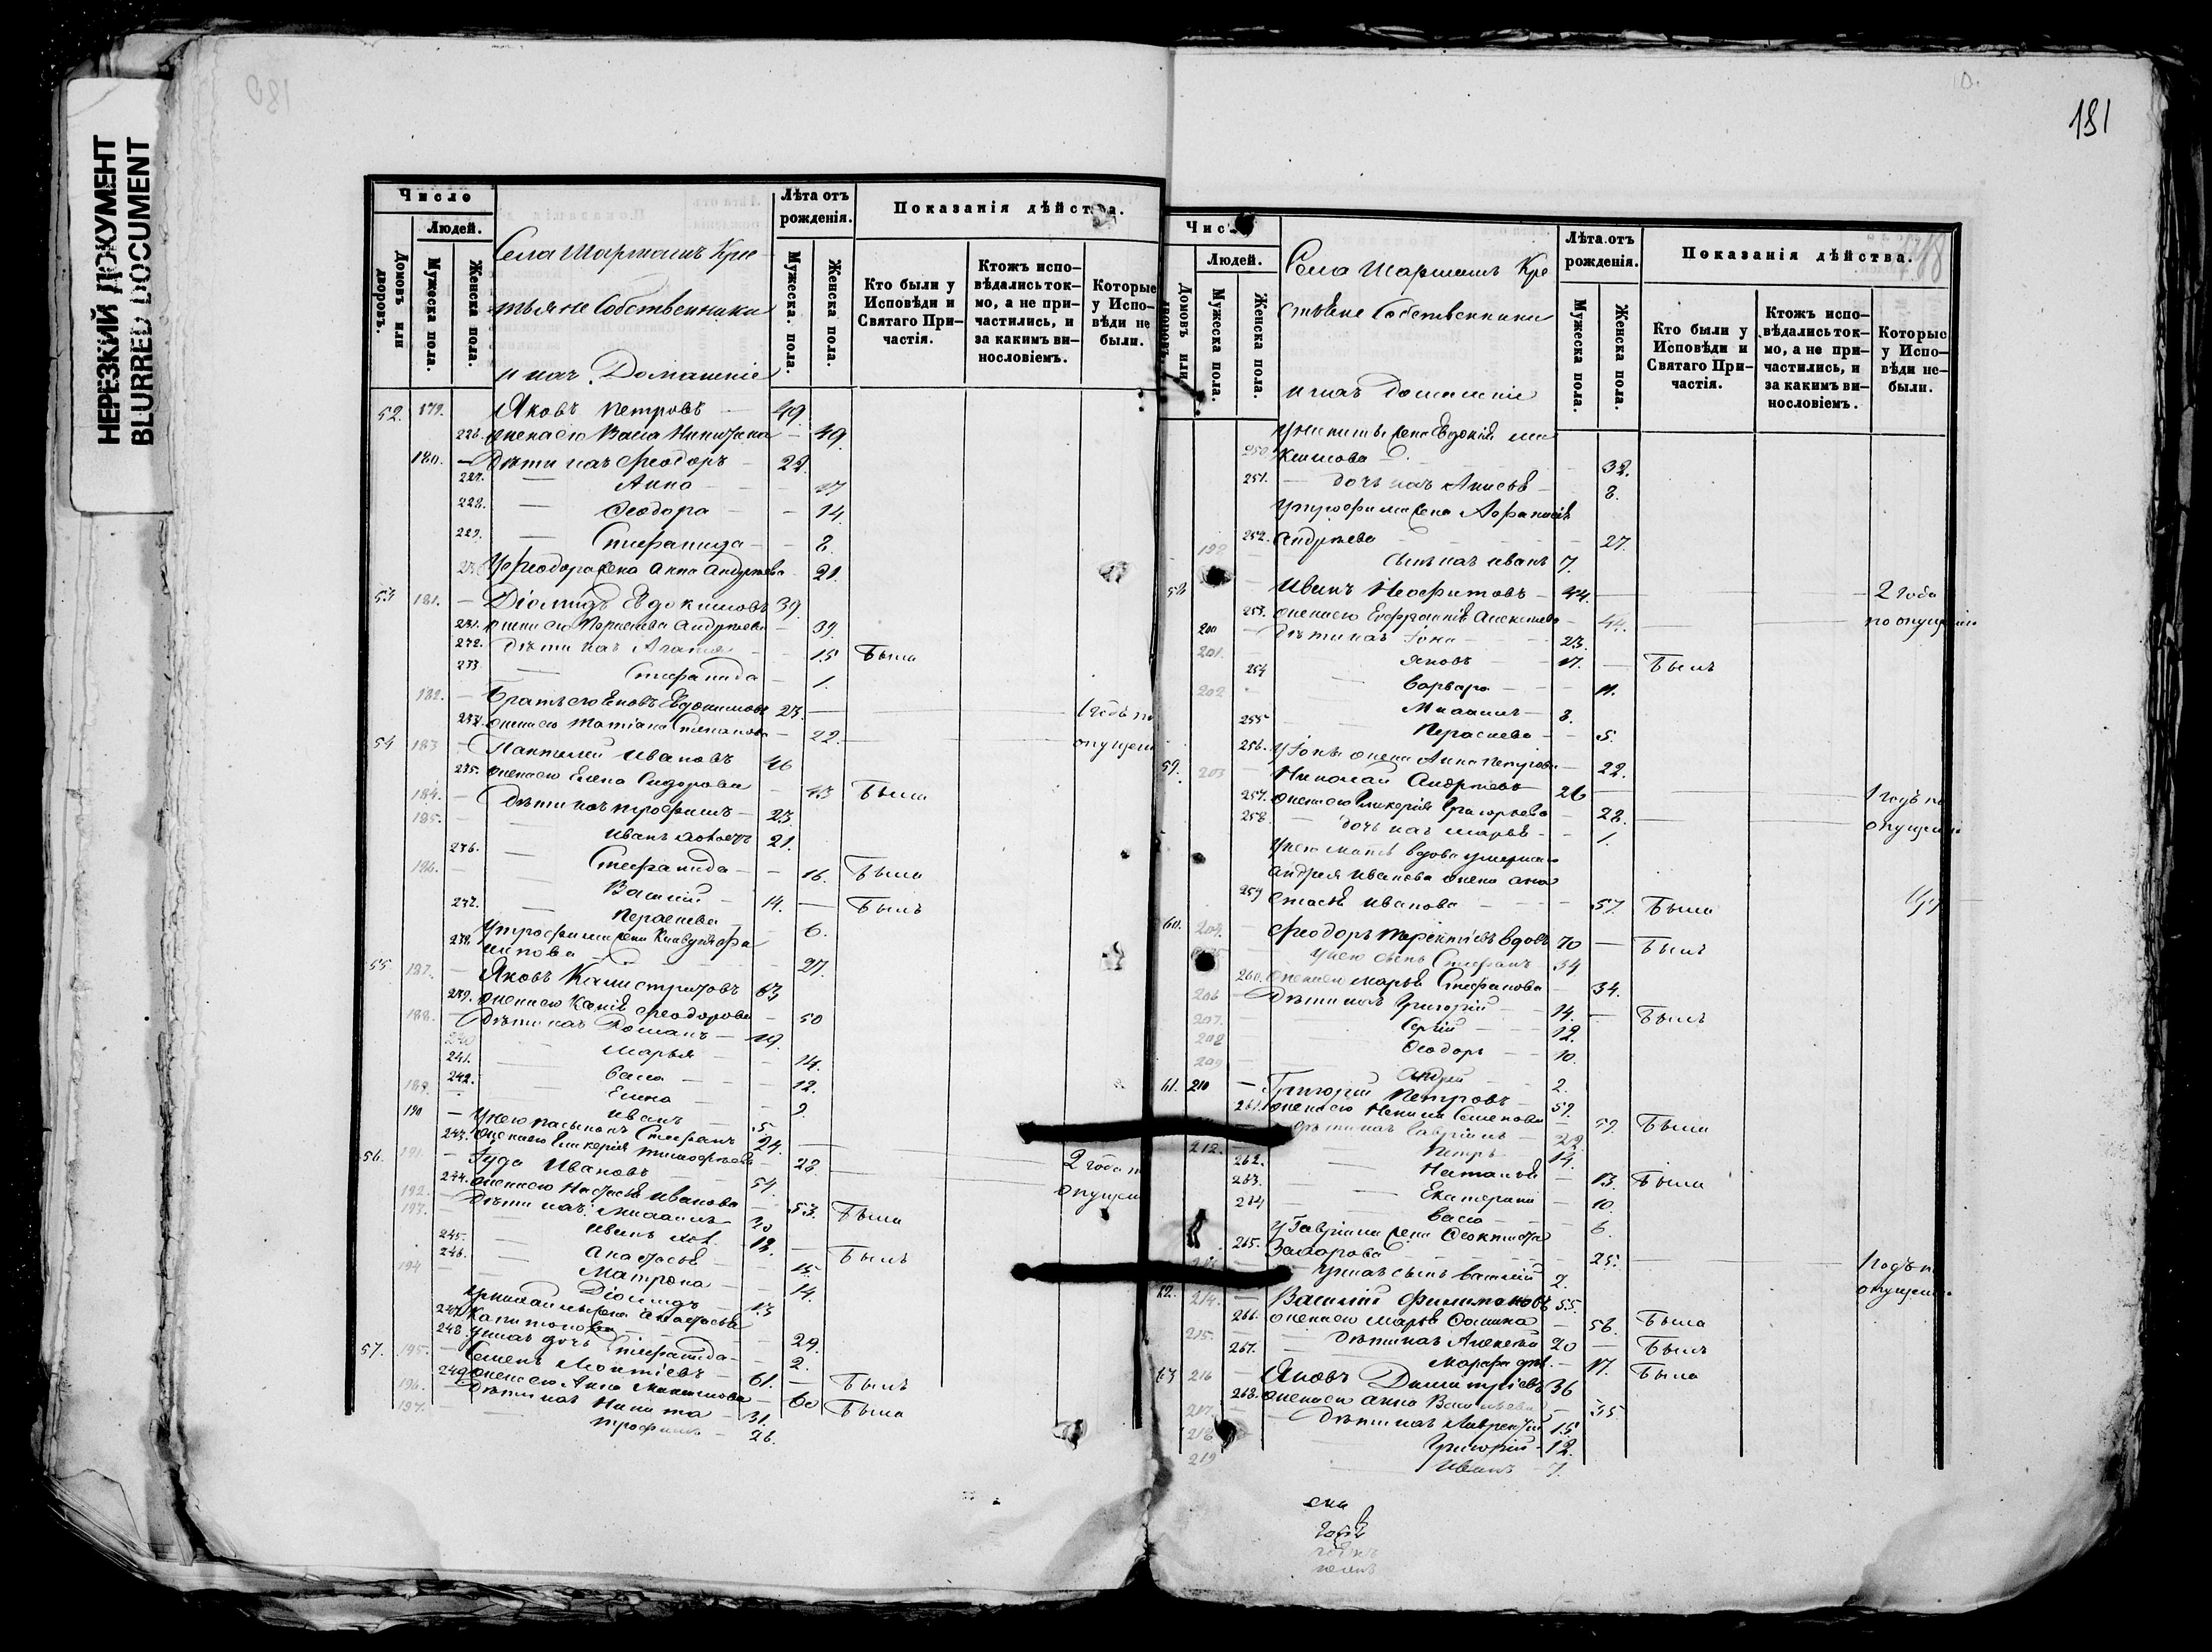 НЕРЕЗКИЙ ДОКУМЕНТ
BLURRED DOCUMENT
180
Число
Людей.
Домовъ или дворовъ.
Мужеска пола.
Женска пола.
Села Шаршанъ Кре
стьяне Собственники
и ихъ Домашніе
Лѣта отъ рожденія.
Мужеска. пола.
Женска пола.
Показанія дѣйства.
Кто были у Исповѣди и Святаго Причастія.
Ктожъ исповѣдались токмо, а не причастились, и за какимъ винословіемъ.
Которые у Исповѣди не были.
52. 179. Яковъ Петровъ 49.
226. жена его Васса 49.
180. Дѣти ихъ Феодоръ 22
227. Анна 17
228. Феодора 14.
229. Стефанида 8.
У Феодора жена Анна Андреева 21.
53 181. Діомидъ Евдокимовъ 39.
231. жена его Параскева Андреева 39.
232. дѣти ихъ Агафія 15 Была
233. Стефанида 1.
182. Братъ его Евдокимовъ 23. 1 годъ по
234. жена его Татіана Степанова 22. опущен
54 183 Пантелей Ивановъ 46
235. жена его Елена Сидорова 43 Была
184. Дѣти ихъ Трофимъ 23.
185. Иванъ 21.
236. Стефанида 16. Была
186. Василій 14. Былъ
237. Параскева 6.
238. У Трофима жена Клавдія Фи
липова 27.
55 187. Яковъ Калистратовъ 63
239. жена его Ксенія Феодорова 50
188. Дѣти ихъ Романъ 19.
240 Марья 14.
241. Васса 12.
242. Елена 9.
189. Иванъ 5.
190 У него пасынокъ Стефанъ 24.
243. жена его Гликерія Тимофеева 28
56. 191. Іуда Ивановъ 54. 2 года п
244. жена его Настасья Иванова 53. Была опущен
192. Дѣти ихъ Михаилъ 30
193. Иванъ 18. Былъ
245. Анастасья 15.
246. Матрона 14.
194 Діомидъ 13
У Михаила жена Анастасья
247. Капитонова 29.
248. У нихъ дочь Стефанида 2.
57. 195. Семенъ Леонтіевъ 61. Былъ
249. жена его Анна Максимова 60 Была
196. Дѣти ихъ Никита 31.
197. Трофимъ 26.
181
Людей.
Домовъ или
Мужеска пола.
Женска пола.
Села Шаршанъ Кре
стьяне Собственники
и ихъ Домашніе
Лѣта отъ рожденія.
Мужеска пола.
Женска пола.
Показанія дѣйства.
Кто были у Исповѣди и Святаго Причастія.
Ктожъ исповѣдались токмо, а не причастились, и за какимъ винословіемъ.
Которые у Исповѣди небыли.
У Никиты жена Евдокія Ма
250. ксимова 32.
251. дочь ихъ Анисья 8.
У Трофима жена Афанасія
252. Андреева 27.
198 Сынъ ихъ Иванъ 7.
58 Иванъ Неофитовъ 44. 2 года
253. жена его Евфросинія Алексеева 44. по опущенію
200 Дѣти ихъ Іона 23.
201. Яковъ 17. Былъ
254 Варвара 11.
202 Михаилъ 8.
255 Параскева 5.
256. У Іоны жена Анна Петрова 22.
59. 203 Николай Андреевъ 26 1 годъ по
257. жена его Гликерія Григорьева 28. опущенію
258. дочь ихъ Марья 1.
У него мать вдова умершаго
Андрея Иванова жена Ана
259 стасья Иванова 57. Была
60. 204. Феодоръ Терентіевъ вдовъ 70 Былъ
У него сынъ Стефанъ 34
260. жена его Марья Стефанова 34.
206 Дѣти ихъ Григорій 14. Былъ
207. Сергій 12.
208 Феодоръ 10.
209 Андрей 2.
61. 210 Григорій Петровъ 59.
261. жена его Семенова 59. Была
Дѣти ихъ Гавріилъ 22
212. Петръ 14.
262. Наталья 13. Была
263. Екатерина 10.
264 Васса 6.
У Гавріила жена Феоктиста
265. Захарова 25. 1 годъ по
У нихъ сынъ Василій 2. опущенію
62. 214. Василій Филимоновъ 55.
266. жена его Марья Фомина 56. Была
215. Дѣти ихъ Алексей 20 Былъ
267. Марфа 17. Была
63 216 Яковъ Димитріевъ 36
268. жена его Анна Васильева 35
217. Дѣти ихъ Лаврентій 15
218 Григорій 12.
219 Иванъ 7.